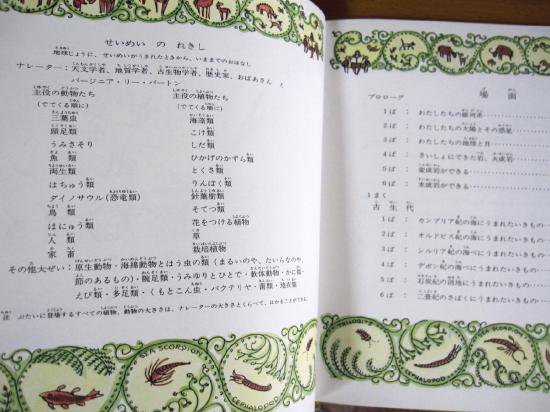 せいめい の れきし
地球じょうに、せいめいがうまれたときから、いままでのおはなし
ナレーター：天文学者、地質学者、古生物学者、歴史家、おばあさん と
バージニア・リー・バートン
主役の動物たち
(でてくる順に)
三葉虫
頭足類
うみさそり
魚類
両生類
はちゅう類
ダイノサウル(恐竜類)
鳥類
ほにゅう類
人類
家畜
主役の植物たち
(でてくる順に)
海藻類
こけ類
しだ類
ひかげのかずら類
とくさ類
りんぼく類
針葉樹類
そてつ類
花をつける植物
草
栽培植物
その他大ぜい：原生動物・海綿動物とはう虫の類(まるいのや、たいらなのや、
節のあるもの)・腕足類・うみゆりとひとで・軟体動物・かに類・
えび類・多足類・くもとこん虫・バクテリヤ・菌類・地衣類
註 ぶたいに登場するすべての植物、動物の大きさは、ナレーターの大きさとくらべて、はかることができる。
SEA SCORPION
CEPHALOPOD
場面
プロローグ
1ば：わたしたちの銀河系
2ば：わたしたちの太陽とその惑星
3ば：わたしたちの地球と月
4ば：きいしょにできた岩、火成岩
5ば：変成岩ができる
6ば：水成岩ができる
1まく
古生代
1ば：カンブリア紀の海にうまれたいきもの
2ば：オルドビス紀の海にうまれたいきもの
3ば：シルリア紀の海にうまれたいきもの
4ば：デボン紀の海べにうまれたいきもの
5ば：石炭紀の沼地にうまれたいきもの
6ば：二畳紀のさばくにうまれたいきもの
TRILOBITE
CEPHALOPOD
SEA SCORPION